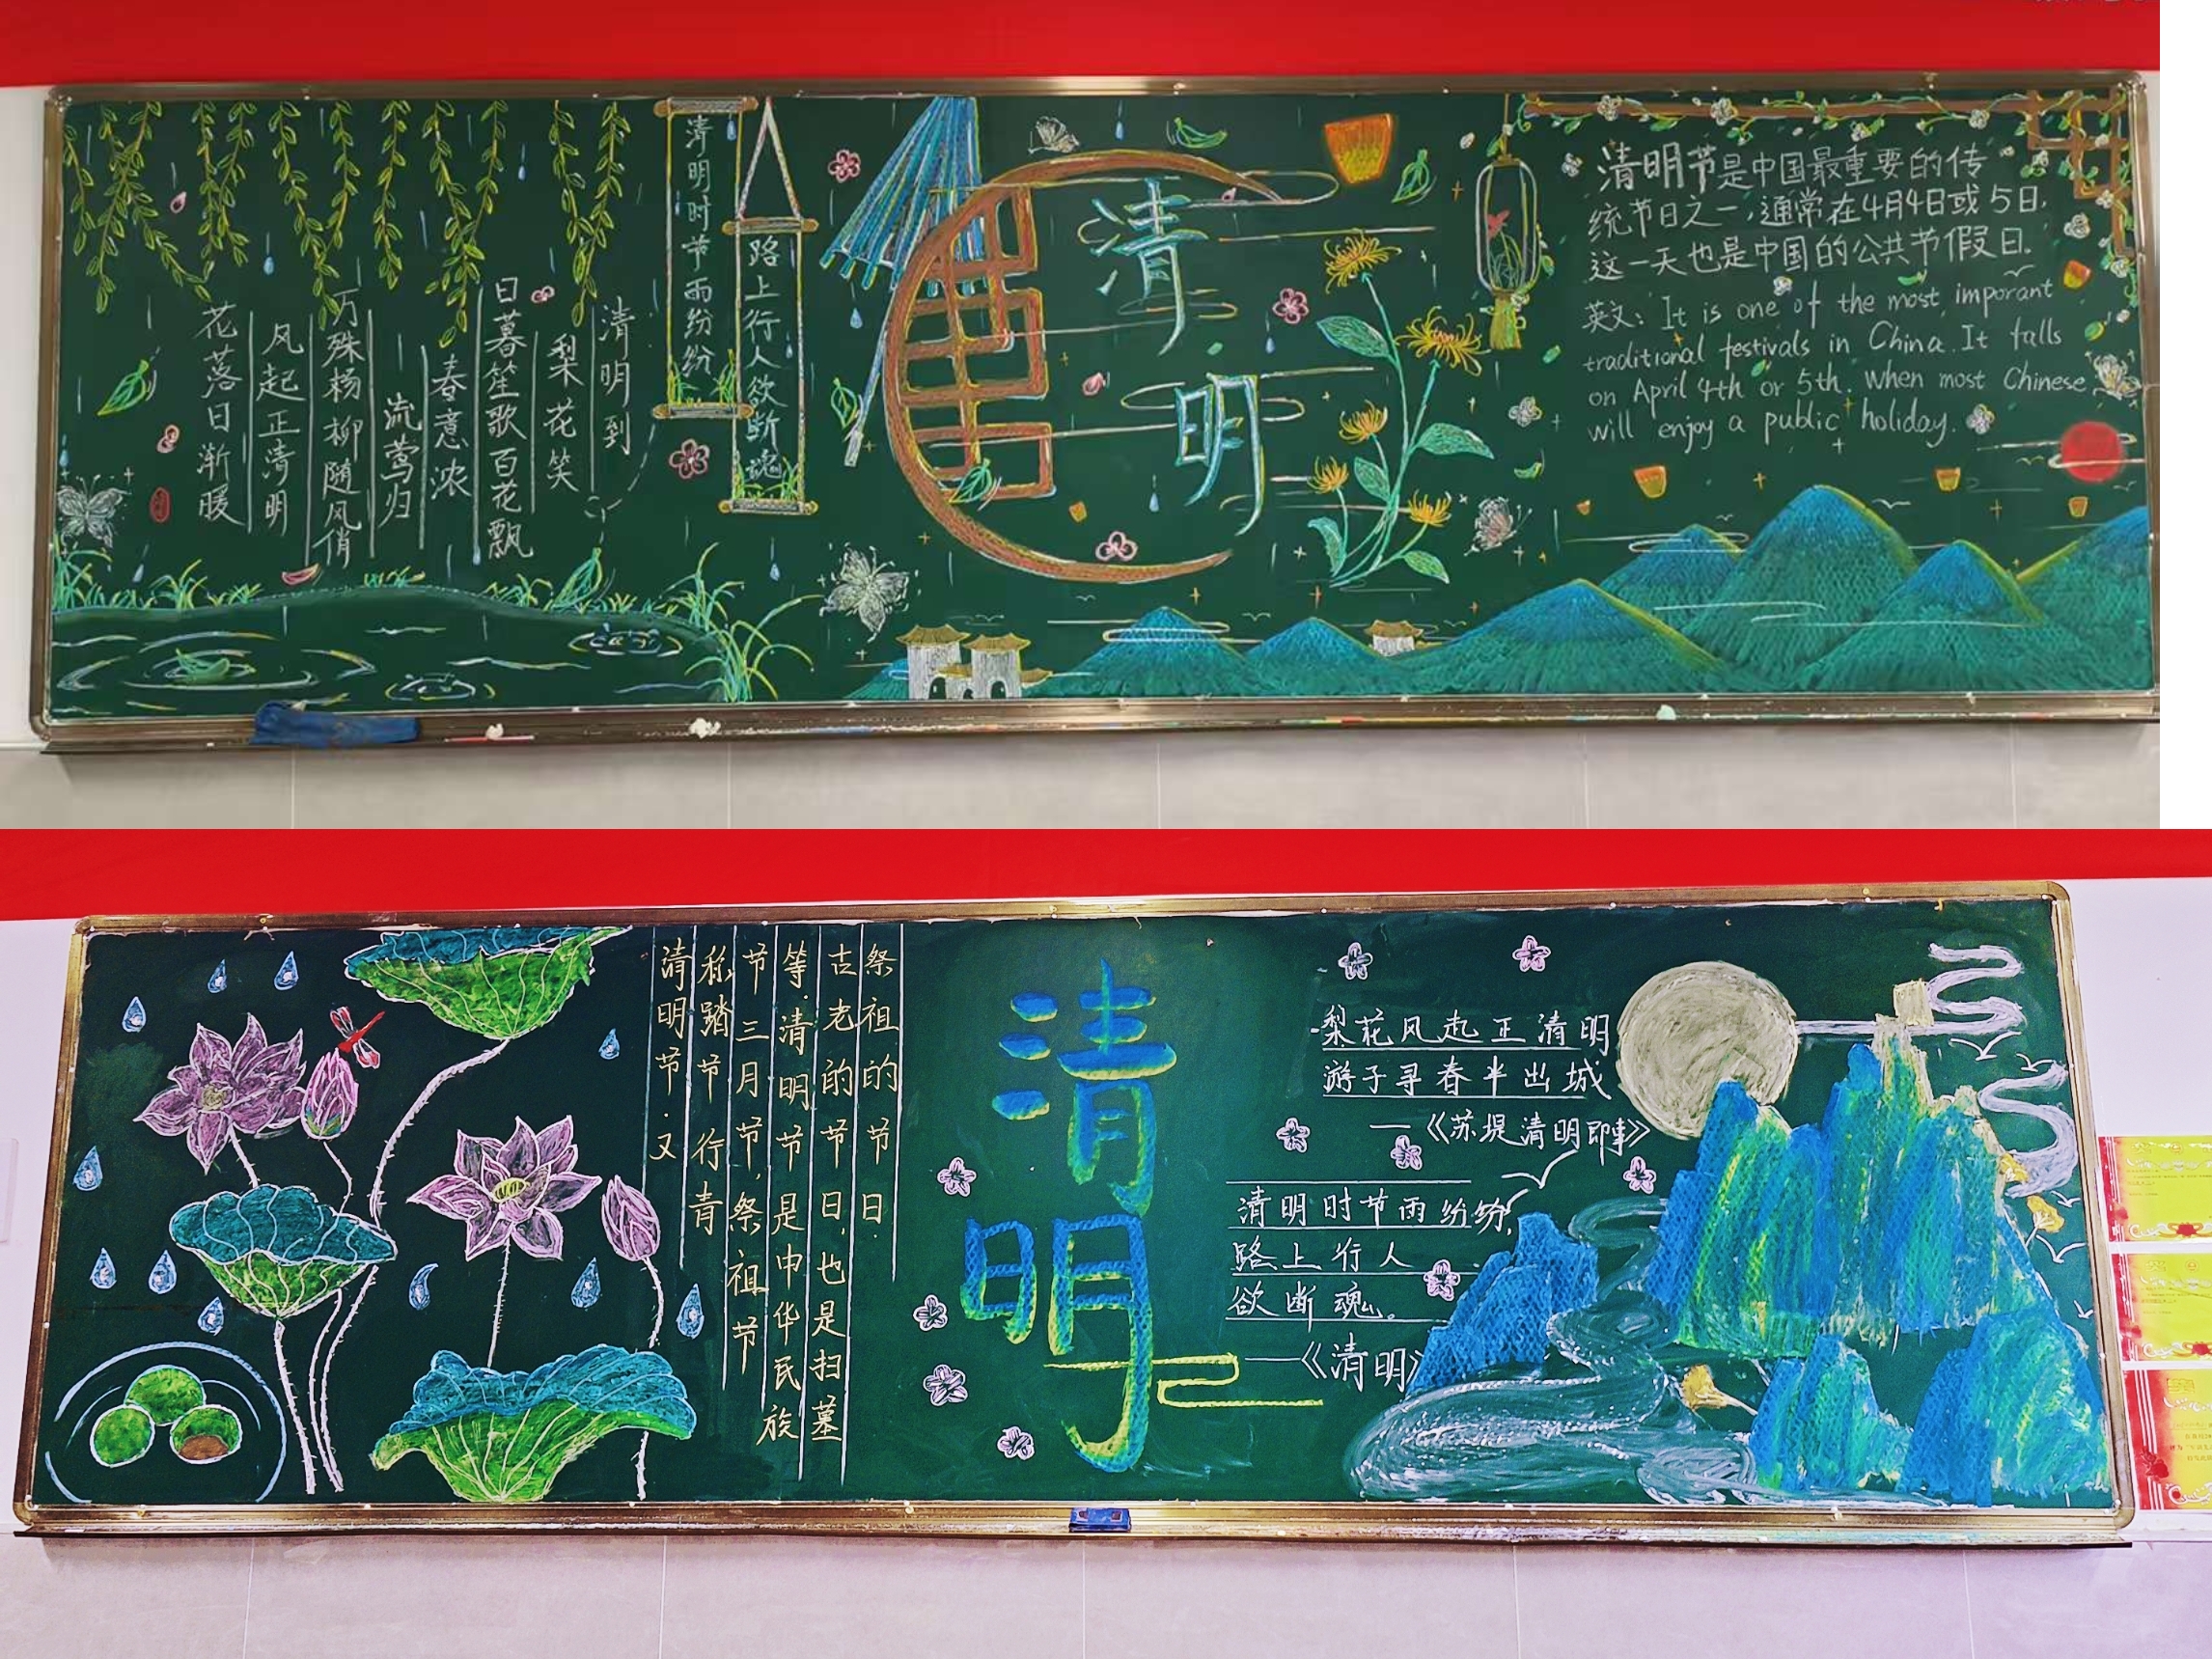 清明到
梨花笑
日暮笙歌百花飘
春意浓
流莺归
万殊杨柳随风俏
风起正清明
花落日渐暖
清明时节雨纷纷
路上行人欲断魂
清明
清明节是中国最重要的传
统节日之一,通常在4月4日或5日,
这一天也是中国的公共节假日.
英文: It is one of the most imporant
traditional festivals in China. It falls
on April 4th or 5th. when most Chinese
will enjoy a public holiday.
清明节.又
称踏节 行青
节三月节,祭祖节
等.清明节是中华民族
古老的节日,也是扫墓
祭祖的节日.
清明
梨花风起正清明
游子寻春半出城
—《苏堤清明即事》
清明时节雨纷纷,
路上行人
欲断魂。
—《清明》